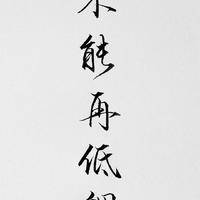 不能再低